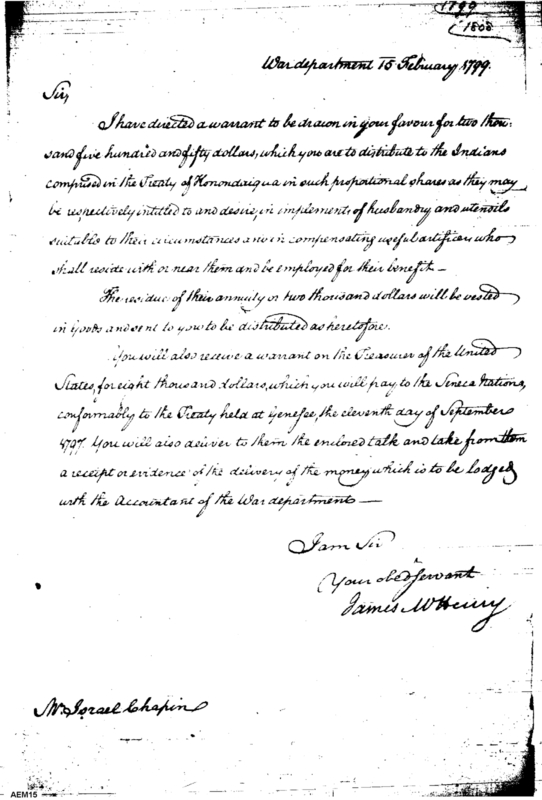 1799
1808
War department 15 February 1799.
Sir,
I have directed a warrant to be drawn in your favour for two thou-
sand five hundred and fifty dollars, which you are to distribute to the Indians
comprised in the Treaty of Konondaigua in such proportional shares as they may
be respectively intitled to and desire, in implements of husbandry and utensils
suitable to their circumstances and in compensating useful artificers who
shall reside with or near them and be employed for their benefit.—
The residue of their annuity or two thousand dollars will be vested
in goods and sent to you to be distributed as heretofore.
You will also receive a warrant on the Treasurer of the United
States, for eight thousand dollars, which you will pay to the Seneca Nations,
conformably to the Treaty held at Genesee, the eleventh day of September
1797. You will also deliver to them the enclosed talk and take from them
a receipt or evidence of the delivery of the money which is to be lodged
with the Accountant of the War department—
I am Sir
Your obed servant
James McHenry
Mr. Israel Chapin
AEM15